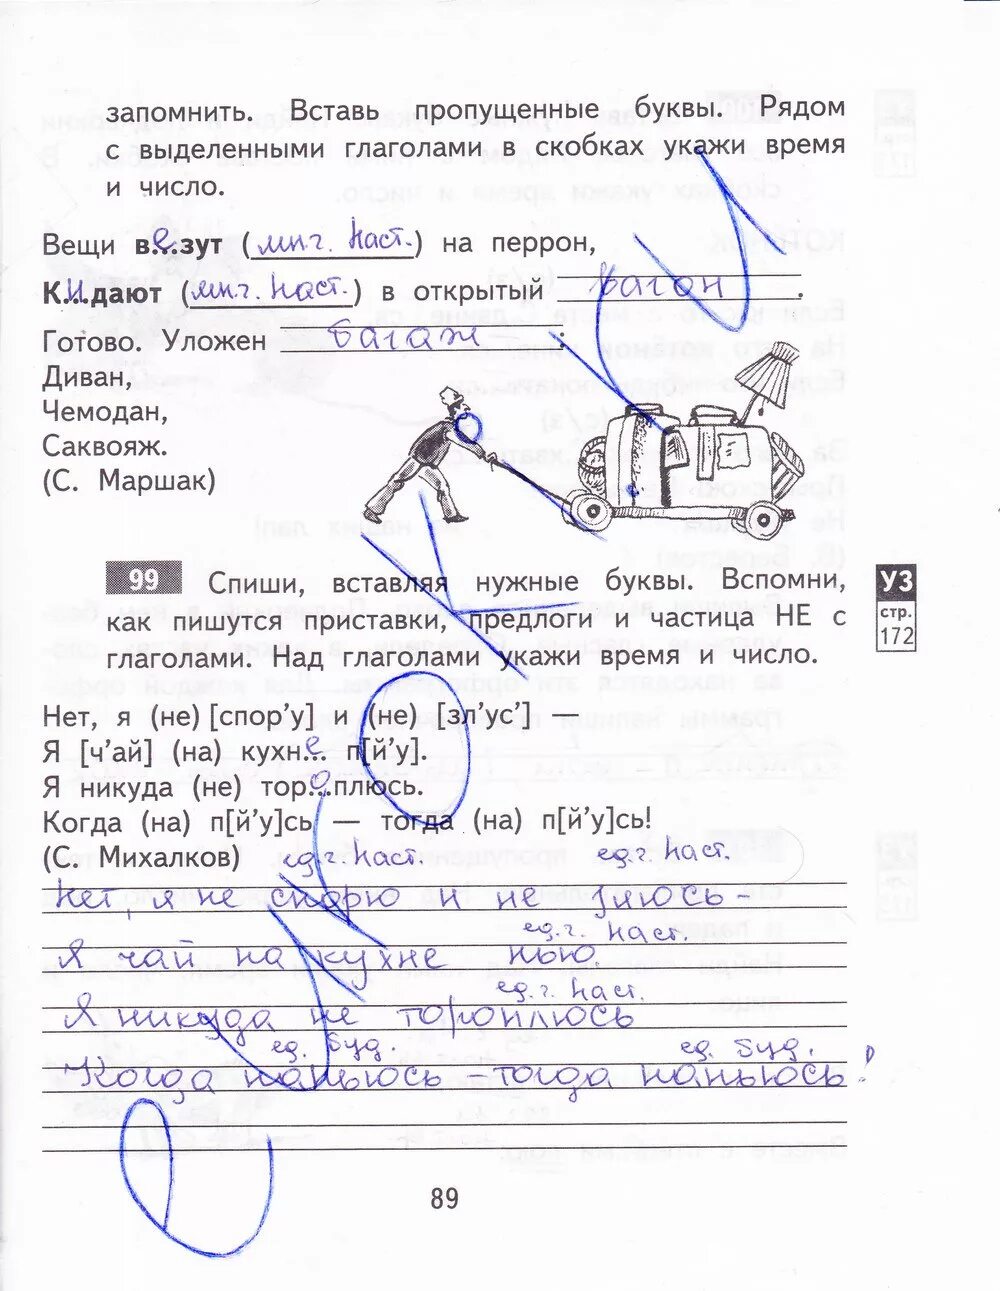 запомнить. Вставь пропущенные буквы. Рядом
с выделенными глаголами в скобках укажи время
и число.
Вещи ве..зут (мн.г. наст.) на перрон,
К.и.дают (мн.г. наст.) в открытый вагон.
Готово. Уложен багаж:
Диван,
Чемодан,
Саквояж.
(С. Маршак)
99 Спиши, вставляя нужные буквы. Вспомни,
как пишутся приставки, предлоги и частица НЕ с
глаголами. Над глаголами укажи время и число.
УЗ
стр.
172
Нет, я (не) [спор'у] и (не) [зл'ус'] —
Я [ч'ай] (на) кухне... п[й'у].
Я никуда (не) тор.о.плюсь.
Когда (на) п[й'у]сь — тогда (на) п[й'у]сь!
(С. Михалков) ед.г. наст. ед.г. наст.
Нет, я не спорю и не злюсь –
ед.г. наст.
Я чай на кухне пью.
ед.г. наст.
Я никуда не тороплюсь
ед. буд. ед. буд.
Когда напьюсь – тогда напьюсь!
89